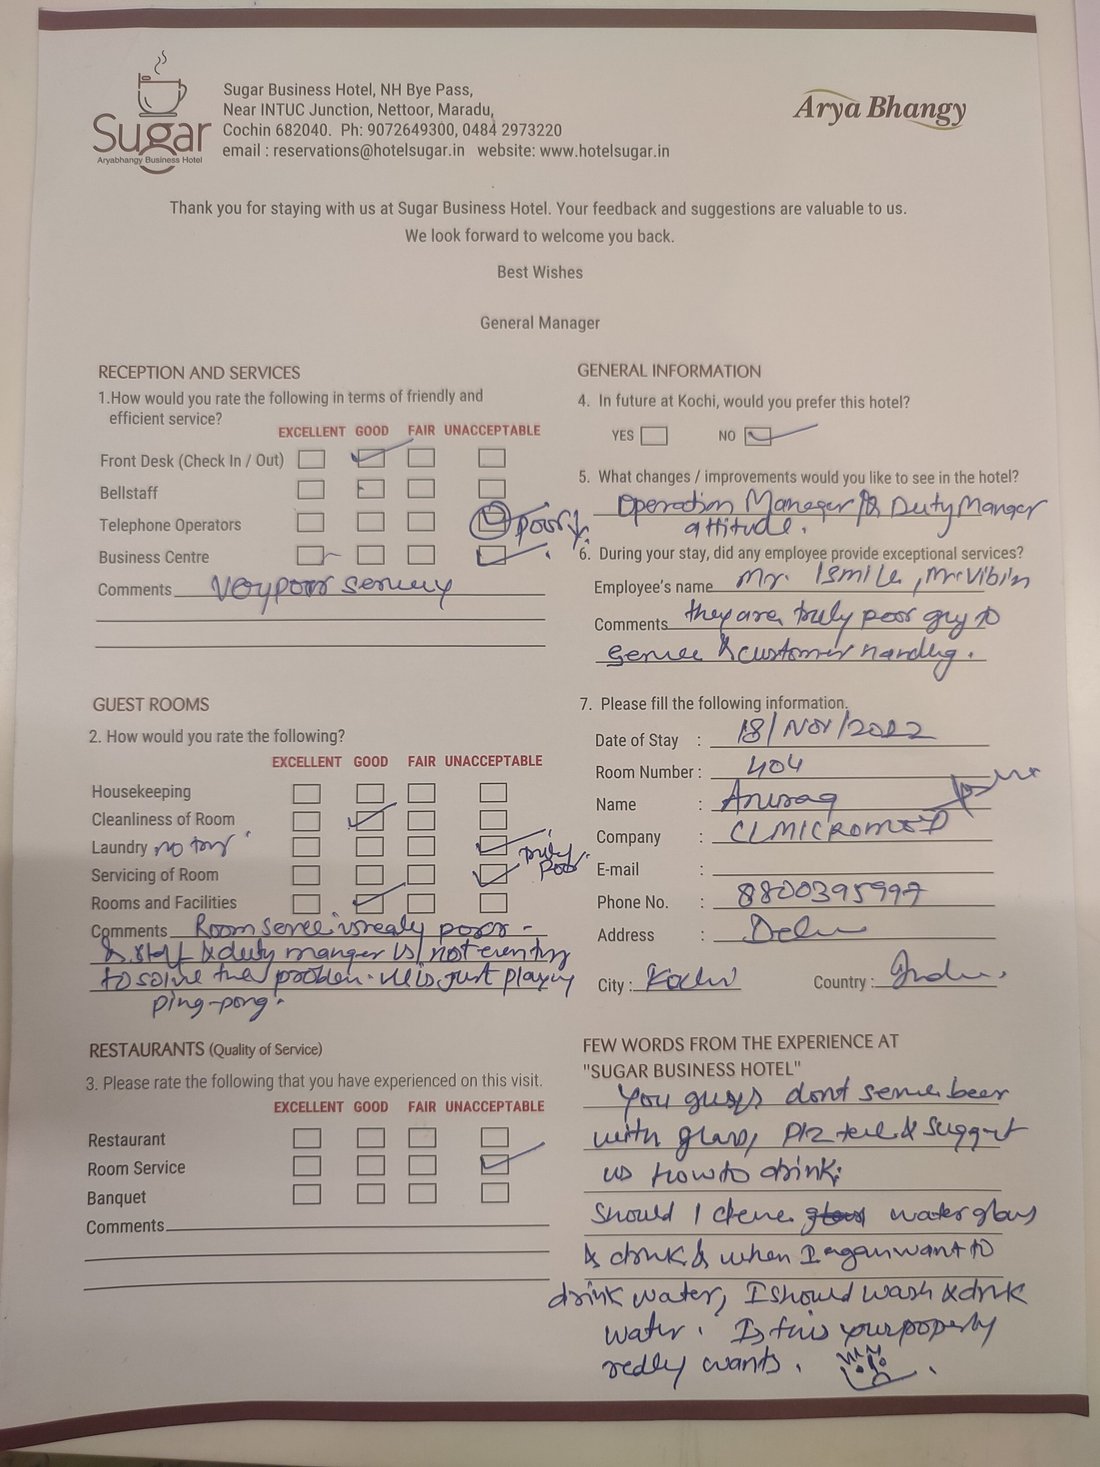 Sugar
Aryabhangy Business Hotel
Sugar Business Hotel, NH Bye Pass,
Near INTUC Junction, Nettoor, Maradu,
Cochin 682040. Ph: 9072649300, 0484 2973220
email : reservations@hotelsugar.in website: www.hotelsugar.in
Arya Bhangy
Thank you for staying with us at Sugar Business Hotel. Your feedback and suggestions are valuable to us.
We look forward to welcome you back.
Best Wishes
General Manager
RECEPTION AND SERVICES
1.How would you rate the following in terms of friendly and
efficient service?
EXCELLENT GOOD FAIR UNACCEPTABLE
Front Desk (Check In / Out)
Bellstaff
Telephone Operators poor
Business Centre
Comments Very poor
GUEST ROOMS
2. How would you rate the following?
EXCELLENT GOOD FAIR UNACCEPTABLE
Housekeeping
Cleanliness of Room
Laundry no truly
Servicing of Room poor
Rooms and Facilities
Comments Room is realy poor -
& staff & duty manger is not even
to solve the problem. He is just playing
ping-pong.
RESTAURANTS (Quality of Service)
3. Please rate the following that you have experienced on this visit.
EXCELLENT GOOD FAIR UNACCEPTABLE
Restaurant
Room Service
Banquet
Comments
GENERAL INFORMATION
4. In future at Kochi, would you prefer this hotel?
YES NO
5. What changes / improvements would you like to see in the hotel?
Operation Manager & Duty Manger
attitude.
6. During your stay, did any employee provide exceptional services?
Employee's name Mr. Ismile, Mr Vibin
Comments they are truly poor guy to
& customer handlig.
7. Please fill the following information.
Date of Stay : 18/Nov/2022
Room Number : 404
Name : Anurag
Company : CLMICROMED
E-mail :
Phone No. : 8800395997
Address : Delhi
City : Kochi Country : India.
FEW WORDS FROM THE EXPERIENCE AT
"SUGAR BUSINESS HOTEL"
You guys dont serve beer
with glass, plz tell & suggest
us how to drink.
Should I water glass
& drink & when I again want to
drink water, I should wash & drink
water. Is this your property
really wants.